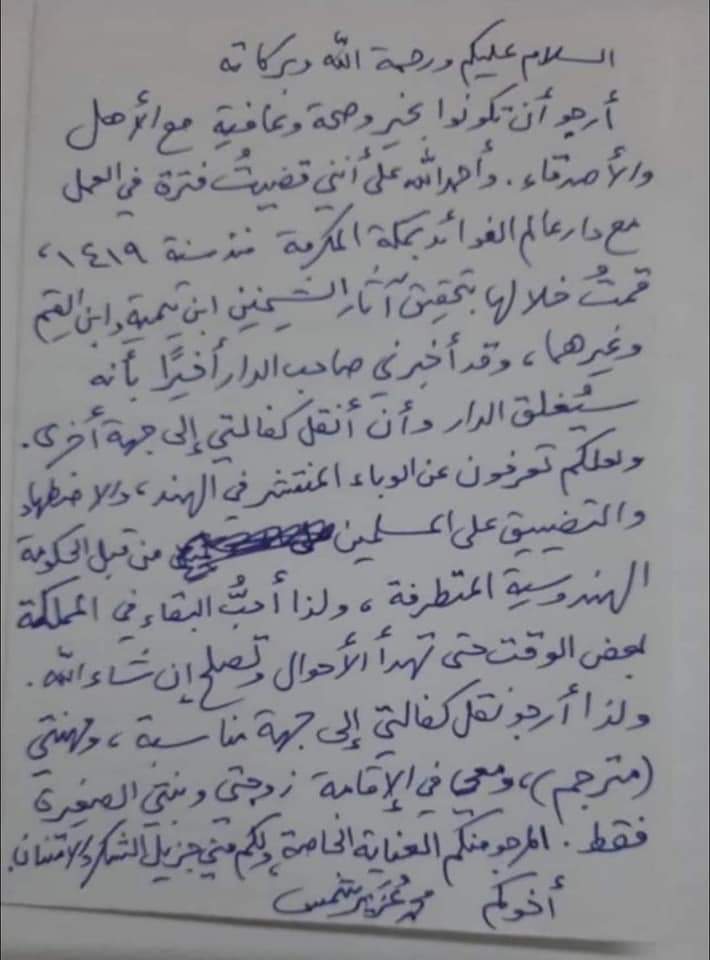 السلام عليكم ورحمة الله وبركاته
أرجو أن تكونوا بخير وصحة وعافية مع الأهل
والأصدقاء. وأحمد الله على أنني قضيتُ فترة في العمل
مع دار عالم الفوائد بمكة المكرمة منذ سنة ١٤١٩،
قمتُ خلالها بتحقيق آثار الشيخين ابن تيمية وابن القيم
وغيرهما، وقد أخبرني صاحب الدار أخيرًا بأنه
سيُغلق الدار وأن أنقل كفالتي إلى جهة أخرى.
ولعلكم تعرفون عن الوباء المنتشر في الهند، والاضطهاد
والتضييق على المسلمين من قبل الحكومة
الهندوسية المتطرفة، ولذا أحبُّ البقاء في المملكة
بعض الوقت حتى تهدأ الأحوال وتصلح إن شاء الله.
ولذا أرجو نقل كفالتي إلى جهة مناسبة، ومهنتي
(مترجم)، ومعي في الإقامة زوجتي وبنتي الصغيرة
فقط. المرجو منكم العناية الخاصة، ولكم مني جزيل الشكر والامتنان.
أخوكم محمد عُزَير شمس